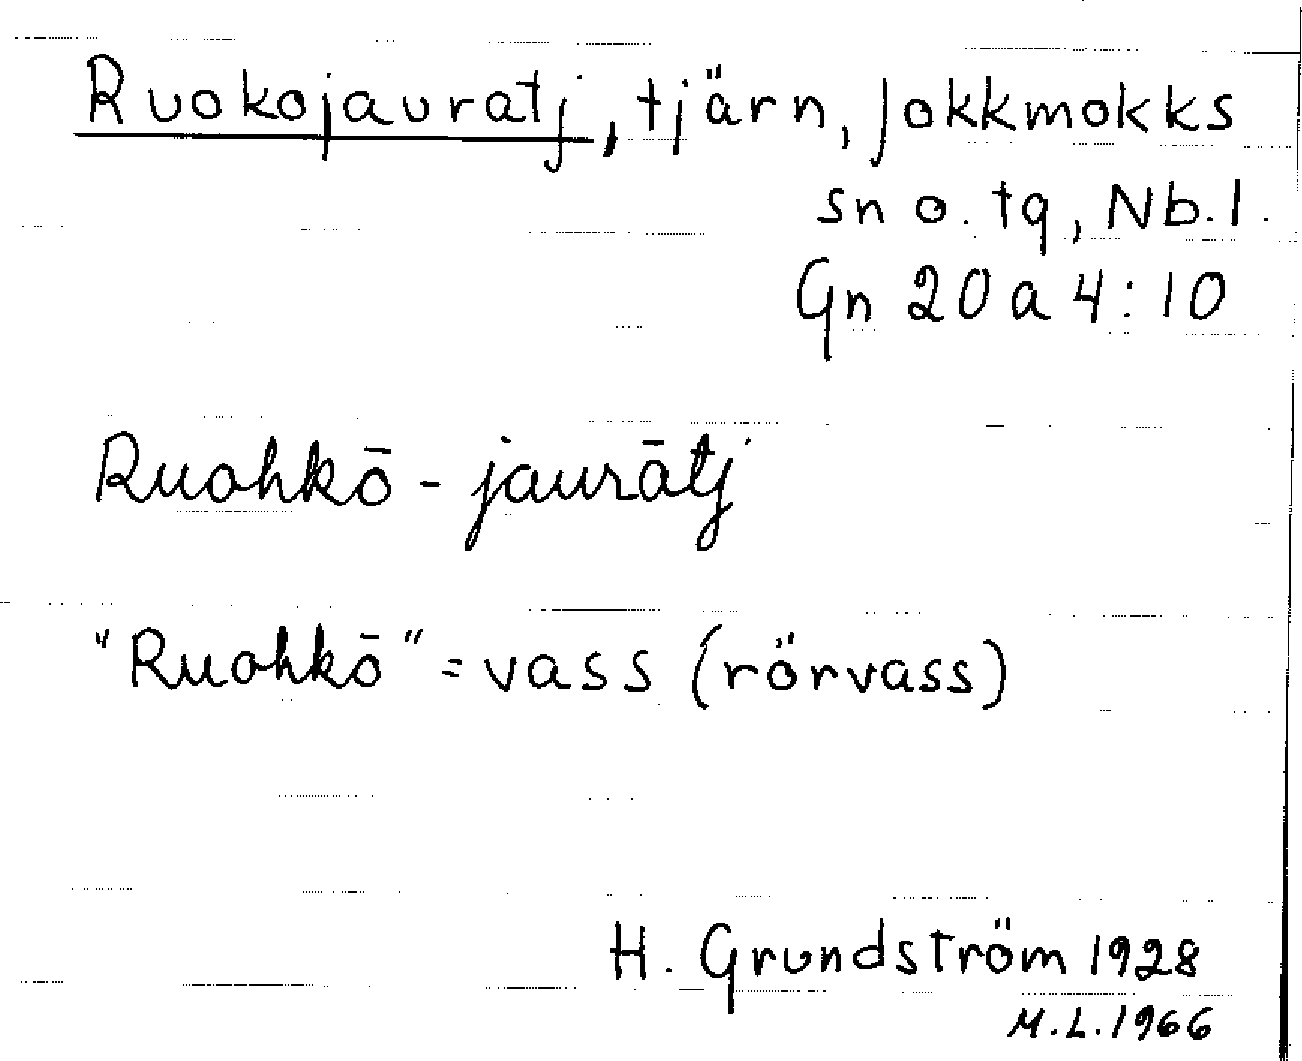 Ruokojauratj, tjärn, Jokkmokks
sn o. tg, Nb.l.
Gn 20 a 4:10
Ruohkō-jaurātj
"Ruohkō" = vass (rörvass)
H. Grundström 1928
M.L. 1966